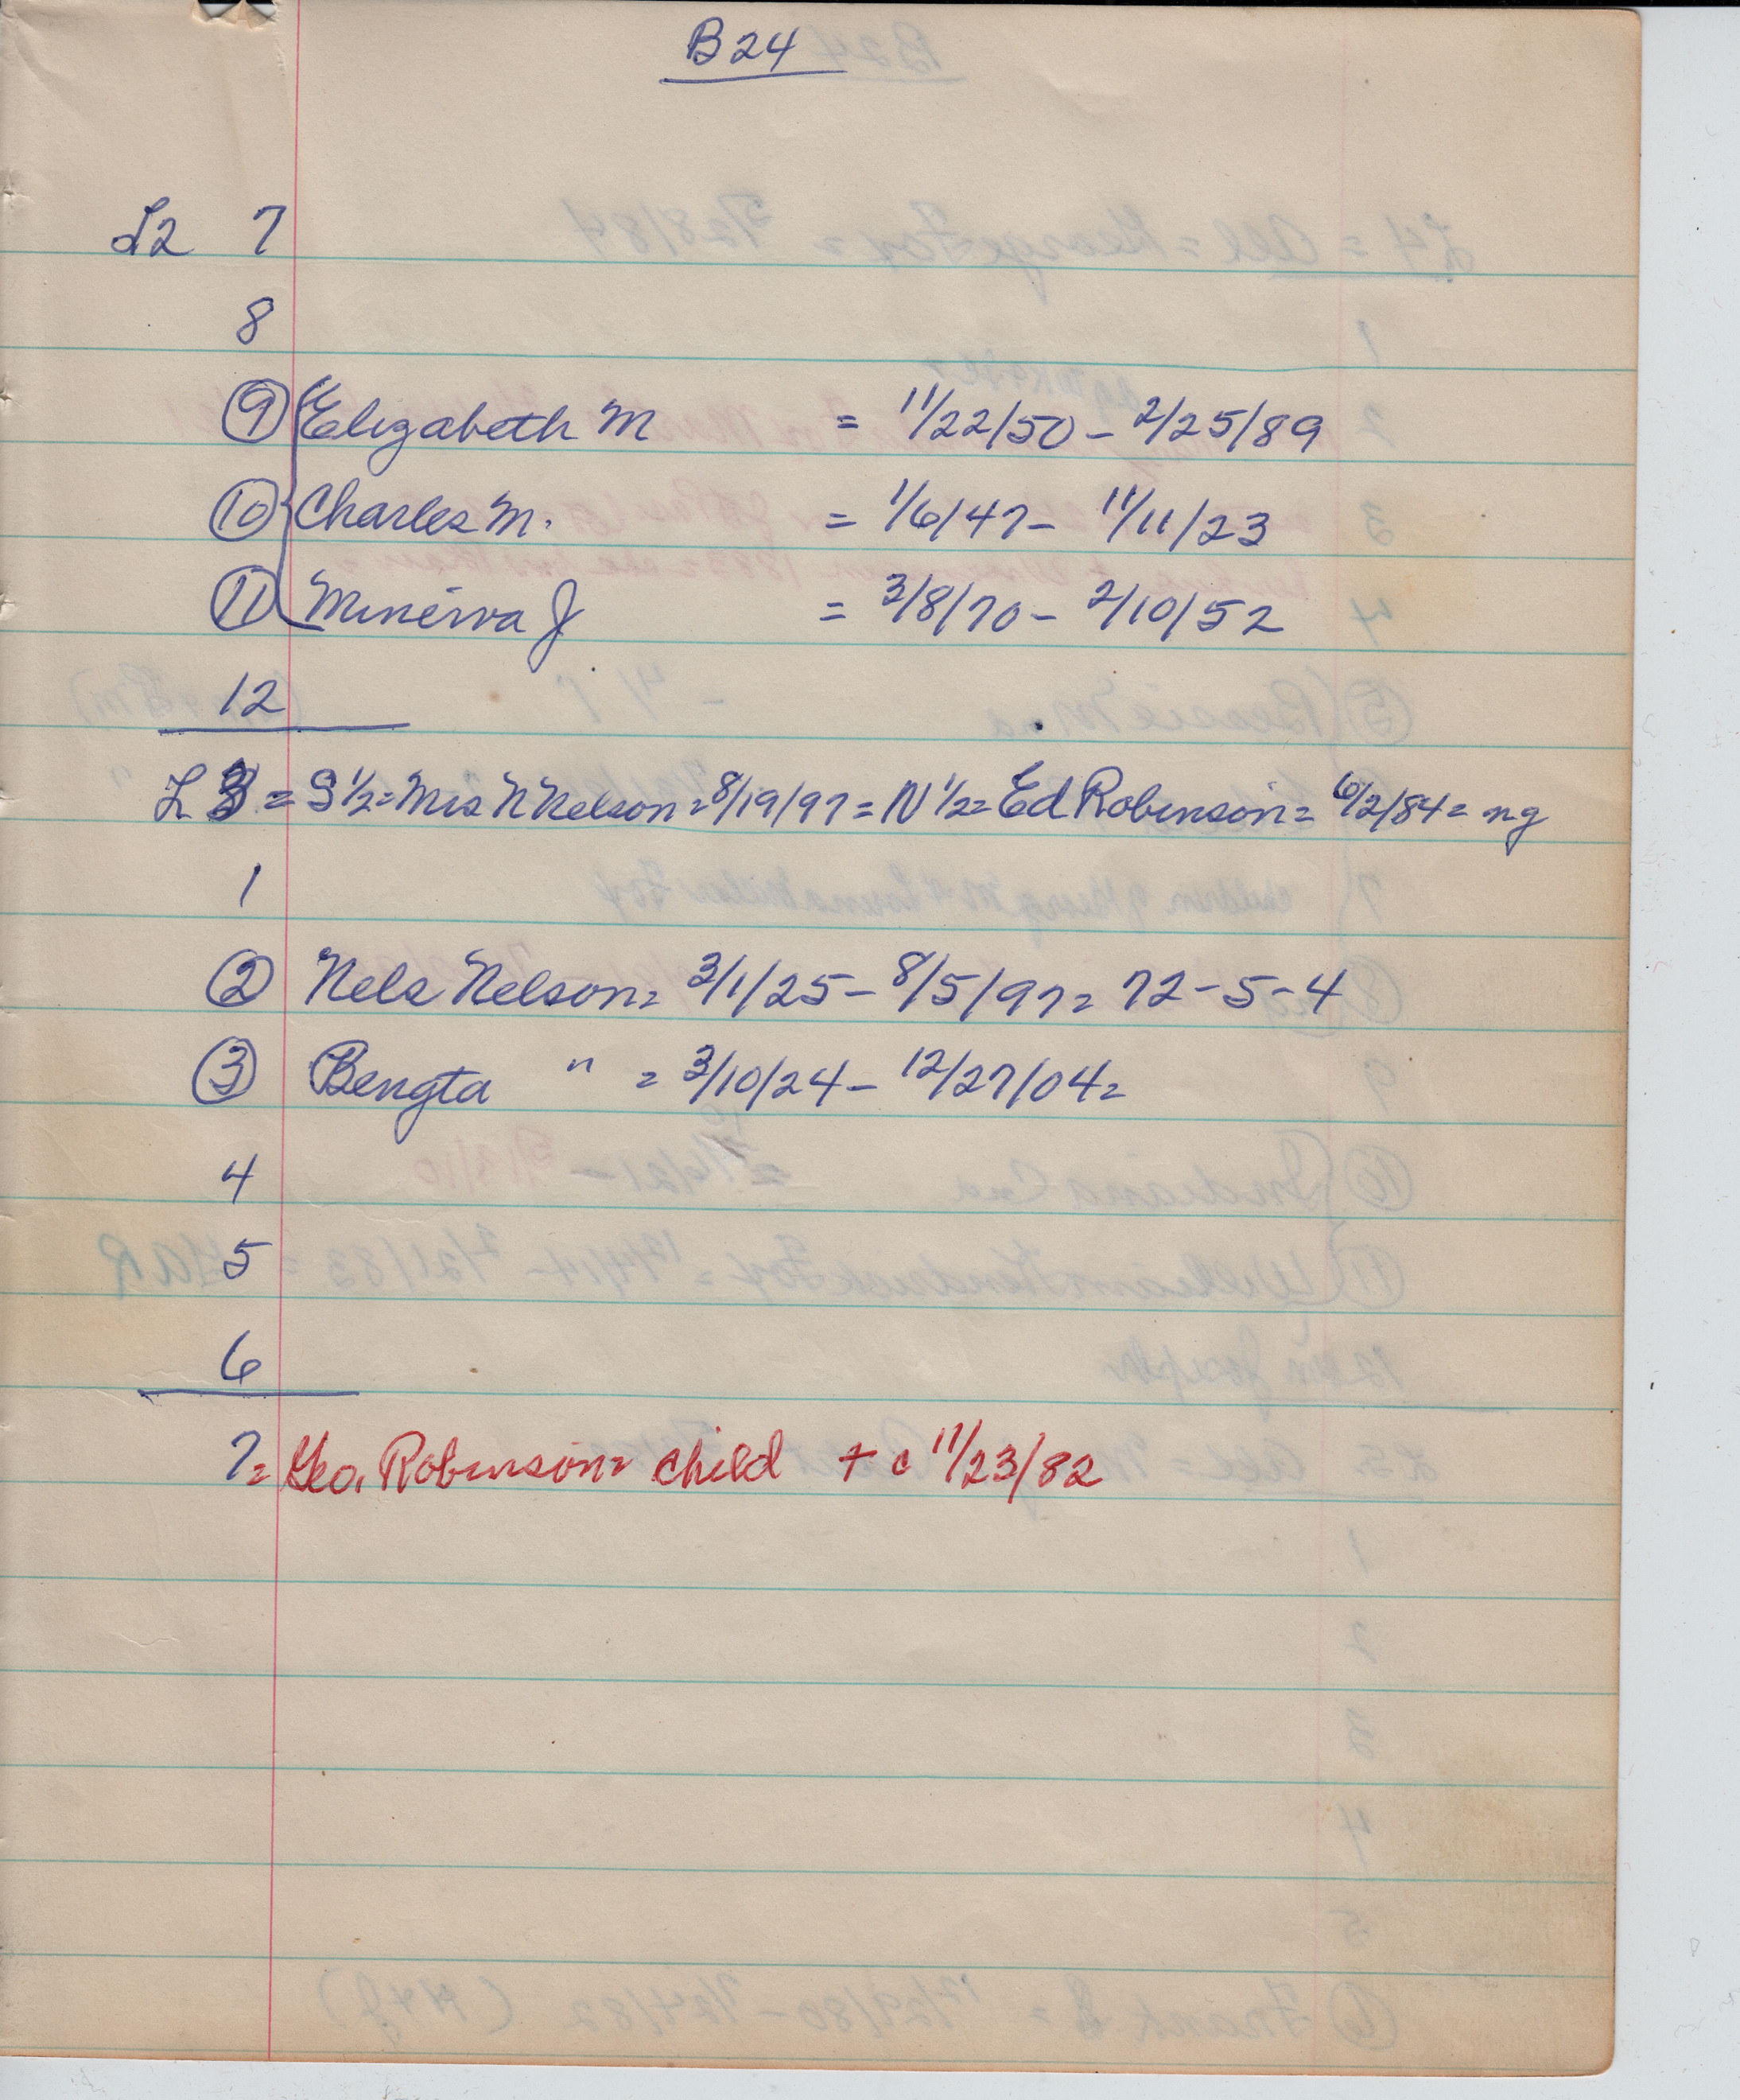 B24
L2 7
8
9 Elizabeth M = 11/22/50 - 2/25/89
10 Charles M. = 1/6/47 - 11/11/23
11 Minerva J = 3/8/70 - 2/10/52
12
L3 = S 1/2 = Mrs N Nelson = 8/19/97 = N 1/2 = Ed Robinson = 6/2/84 = ng
1
2 Nels Nelson = 3/1/25 - 8/5/97 = 72-5-4
3 Bengta " = 3/10/24 - 12/27/04 =
4
5
6
7 = Geo. Robinson = child + c 11/23/82